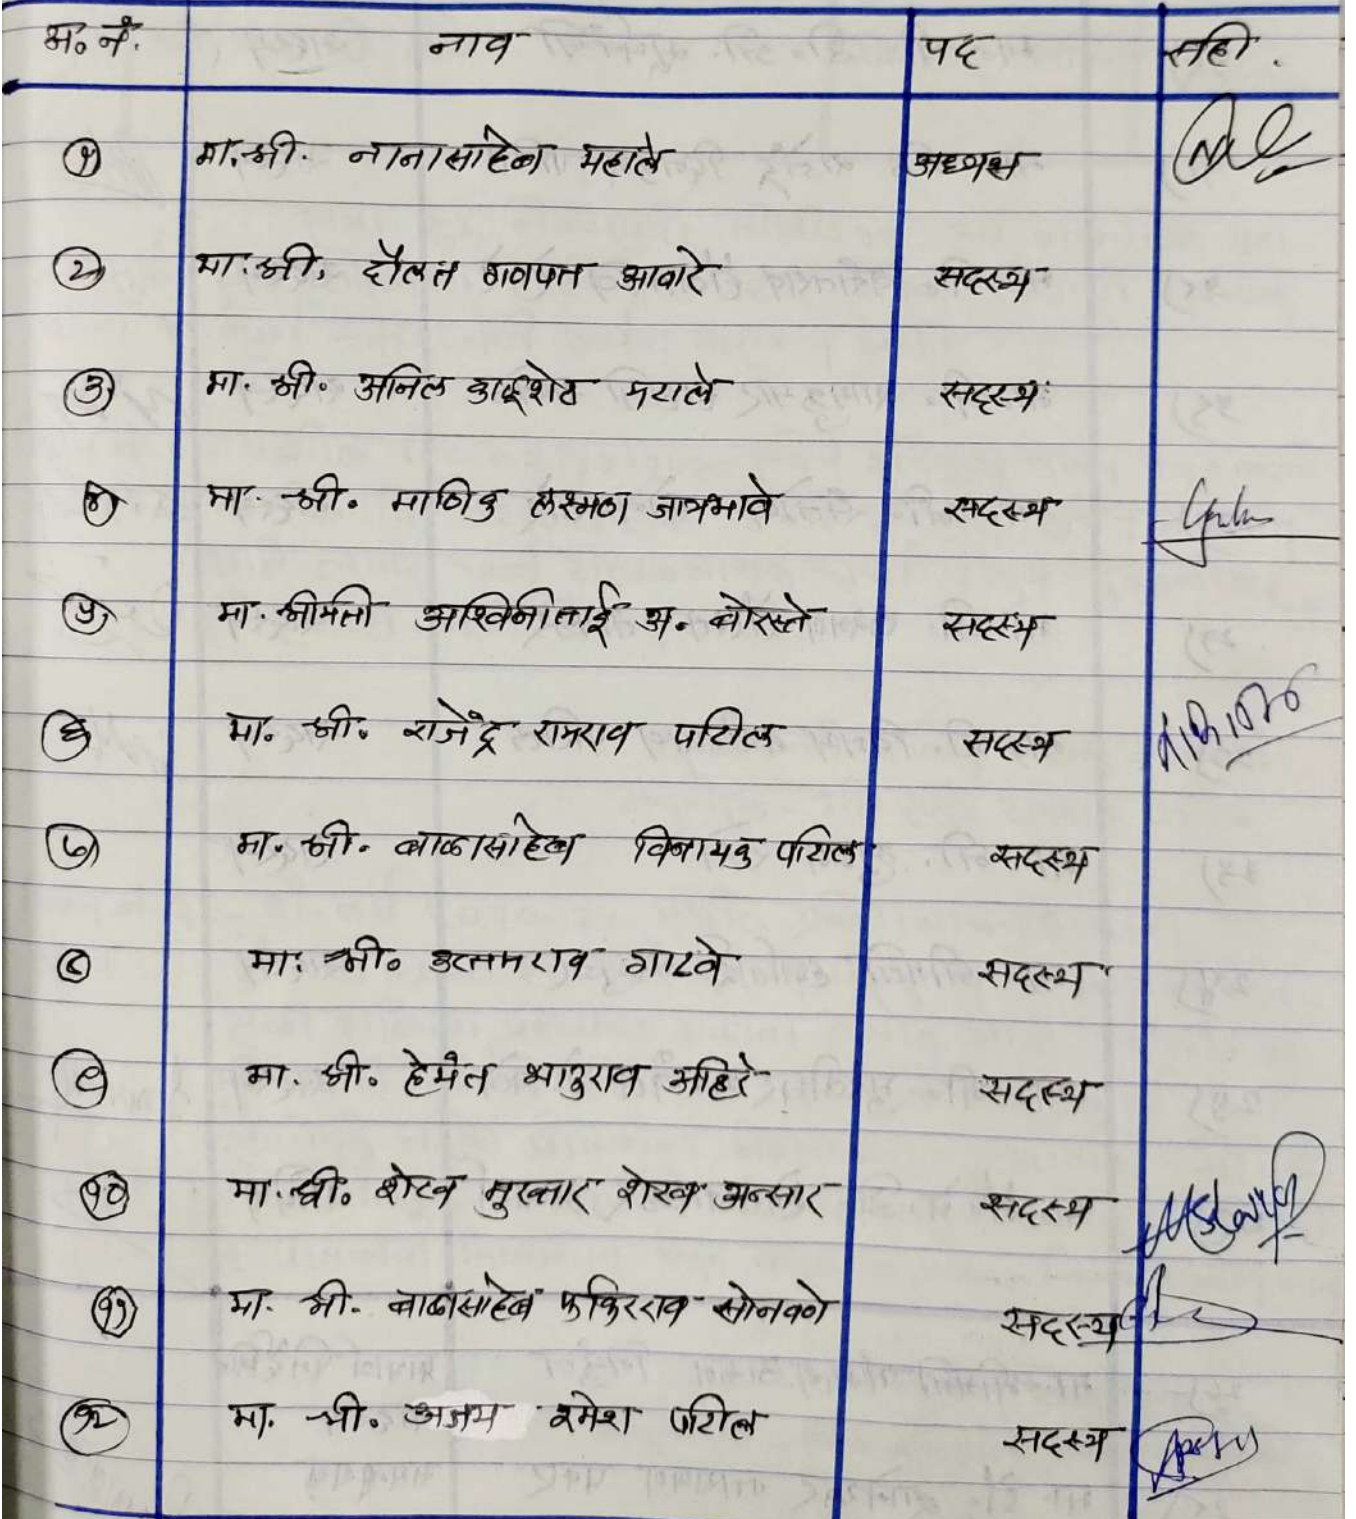 अ. नं. नाव पद सही.
१ मा. श्री. नानासाहेब महाले अध्यक्ष
२ मा. श्री. दौलत गणपत आवारे सदस्य
३ मा. श्री. अनिल भाईशेठ मराले सदस्य
४ मा. श्री. माणिक लक्ष्मण जायभावे सदस्य
५ मा. श्रीमती अश्विनीताई अ. बोरस्ते सदस्य
६ मा. श्री. राजेंद्र रामराव पाटील सदस्य
७ मा. श्री. बाळासाहेब विनायक पाटील सदस्य
८ मा. श्री. उत्तमराव गाढवे सदस्य
९ मा. श्री. हेमंत भाऊराव अहिरे सदस्य
१० मा. श्री. शेख मुख्तार शेख अन्सार सदस्य
११ मा. श्री. बाळासाहेब फकिरराव सोनवणे सदस्य
१२ मा. श्री. अजय रमेश पाटील सदस्य